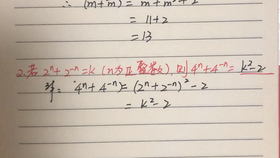 ∴ (m+m)² = m²+m⁻²+2
= 11+2
= 13
2.若 2ⁿ+2⁻ⁿ=k (n为正整数), 则 4ⁿ+4⁻ⁿ= k²-2
解: 4ⁿ+4⁻ⁿ= (2ⁿ+2⁻ⁿ)²-2
= k²-2